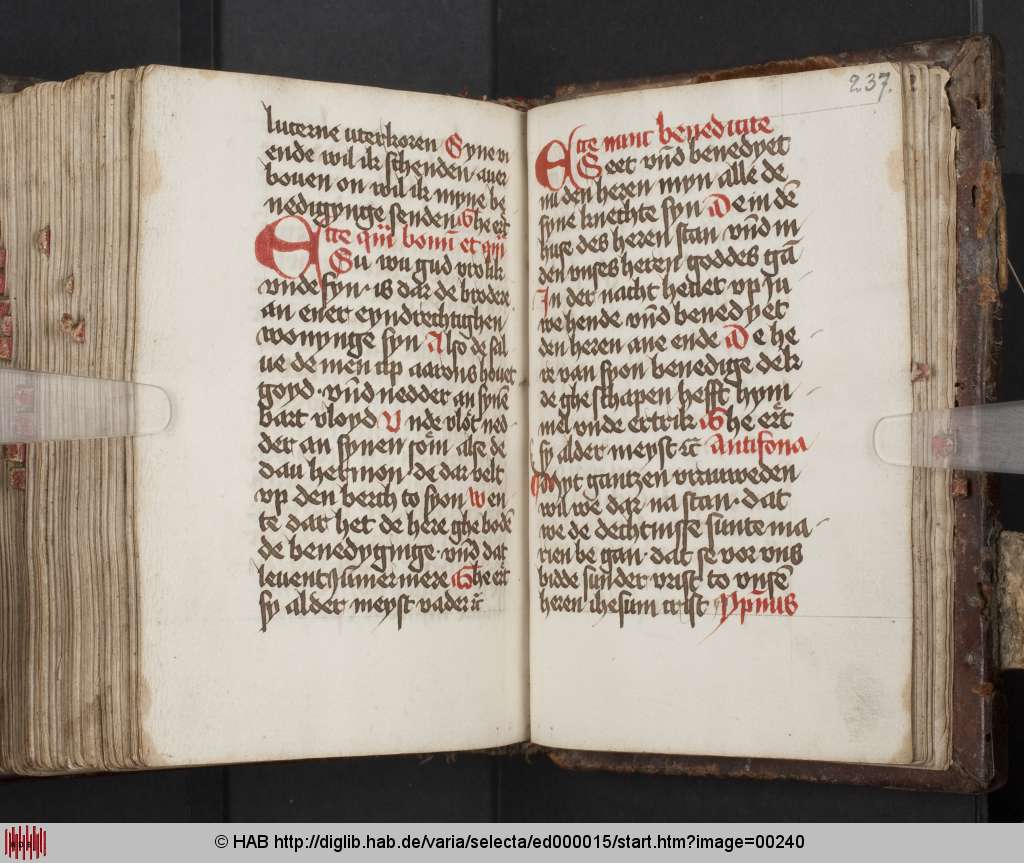 lucerne uterkoren Synen
ende wil ik schenden · auer
bouen on wil ik myne be
nedigynge senden Ghe eͤt
Ecce qm̄ bonū et qm̄
Su wu gud vrolik
vnde syn · is dar de brodere
an ener eyndrechtighen
wonynge syn Also de sal
ue de men up aarons houet
goyd · vn̄d nedder an synē
bart vloyd Unde vlot ned
der an synen som̄ alse de
dau hermon · de dar velt
vp den berch to syon Wen
te dar het de here ghe bodē
de benedyginge · vn̄d dat
leuent ūmermere Ghe eͤt
sy alder meyst · vader &c
237.
Ecce nunc benedicite
Seet vn̄d benedyet
nu den heren myn alle de
syne knechte syn De in dē
huse des heren stan vn̄d in
den vnses heren goddes gā
In der nacht heuet vp Ju
we hende vn̄d benedyet
den heren ane ende De he
re van syon benedige dek
de ghe schapen hefft hym
mel vnde ertrik Ghe eͤrt
sy alder meyst &c Antifona
Myt gantzen vrauweden
wil we dar na stan · dat
we de dechtnisse sunte ma
rien be gan · dat se vor vns
bidde sunder vrist to vnsē
heren ihesum crist Ypn̄us
© HAB http://diglib.hab.de/varia/selecta/ed000015/start.htm?image=00240